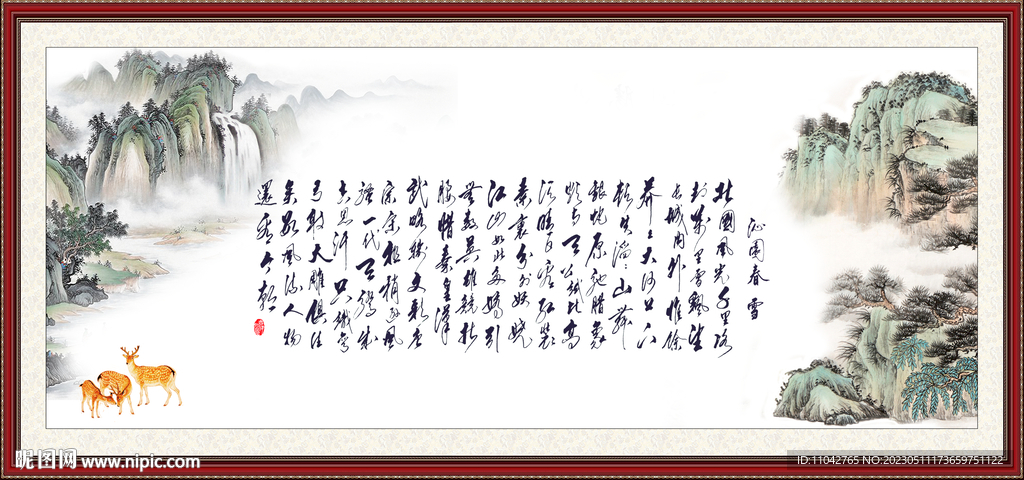 沁園春 雪
北國風光千里冰
封萬里雪飄望
长城内外惟馀
莽々大河上下
顿失滔々山舞
银蛇原驰腊象
欲与天公試比高
须晴日看红装
素裹分外妖娆
江山如此多娇引
無数英雄競折
腰惜秦皇漢
武略输文彩唐
宗宋祖稍逊風
骚一代天骄成
吉思汗只識弯
弓射大雕俱往
矣数風流人物
還看今朝
昵图网 www.nipic.com
ID:11042765 NO:20230511173659751122